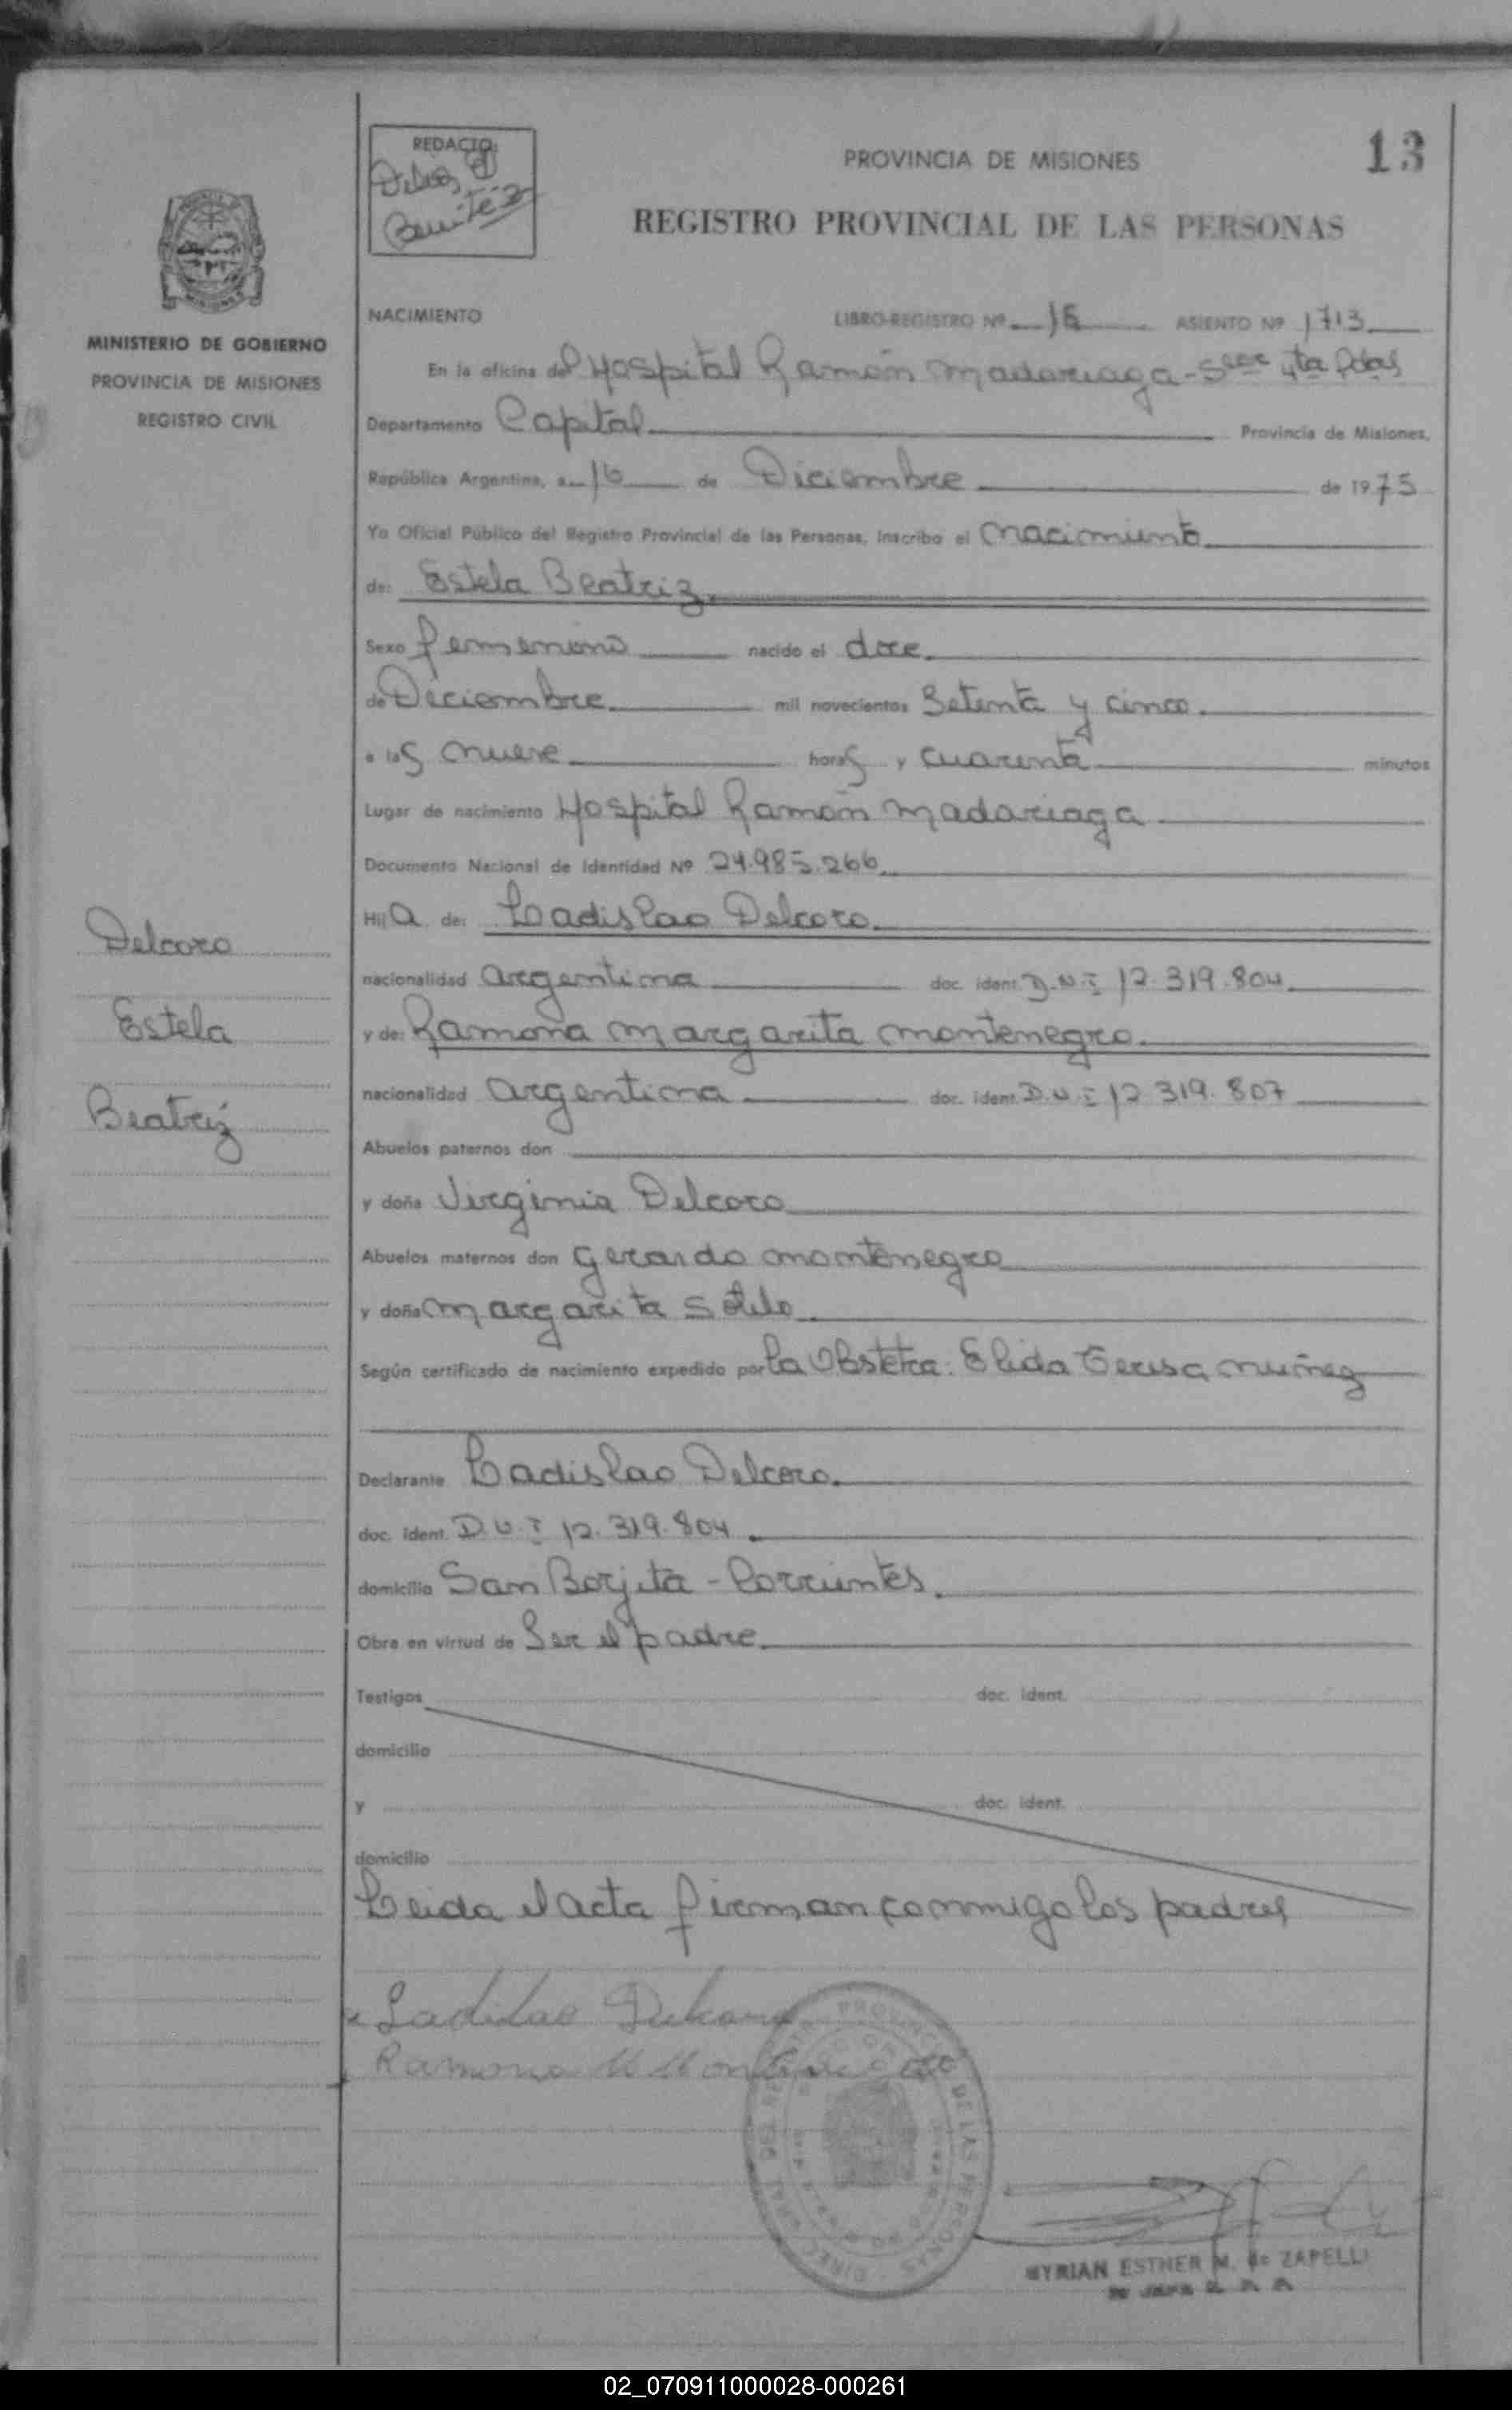 13
REDACTO:
Benitez
PROVINCIA DE MISIONES
REGISTRO PROVINCIAL DE LAS PERSONAS
MINISTERIO DE GOBIERNO
PROVINCIA DE MISIONES
REGISTRO CIVIL
NACIMIENTO LIBRO-REGISTRO Nº ASIENTO Nº 1713
En la oficina del Hospital Ramón Madariaga - Secc 4ta Pdas
Departamento Capital Provincia de Misiones,
República Argentina, a 16 de Diciembre de 1975
Yo Oficial Público del Registro Provincial de las Personas, Inscribo el nacimiento
de: Estela Beatriz
Sexo femenino nacido el doce
de Diciembre mil novecientos Setenta y cinco.
a las nueve horas y cuarenta minutos
Lugar de nacimiento Hospital Ramón Madariaga
Documento Nacional de Identidad Nº 24.985.266
Hija de: Ladislao Delcoro.
nacionalidad argentina doc. ident. D.N.I 12.319.804
y de: Ramona Margarita Montenegro.
nacionalidad argentina doc. ident. D.N.I 12.319.807
Abuelos paternos don
y doña Virginia Delcoro
Abuelos maternos don Gerardo Montenegro
y doña Margarita Sotelo
Según certificado de nacimiento expedido por la Obstetra: Elida Teresa Nuñez
Declarante Ladislao Delcoro.
doc. ident. D.N.I 12.319.804
domicilio San Borjita - Corrientes.
Obra en virtud de Ser el padre
Testigos doc. ident.
domicilio
y doc. ident.
domicilio
Leida el acta firman conmigo los padres
Delcoro
Estela
Beatriz
Ladislao Delcoro
Ramona M Montenegro
MYRIAN ESTHER M. de ZAPELLI
02_070911000028-000261